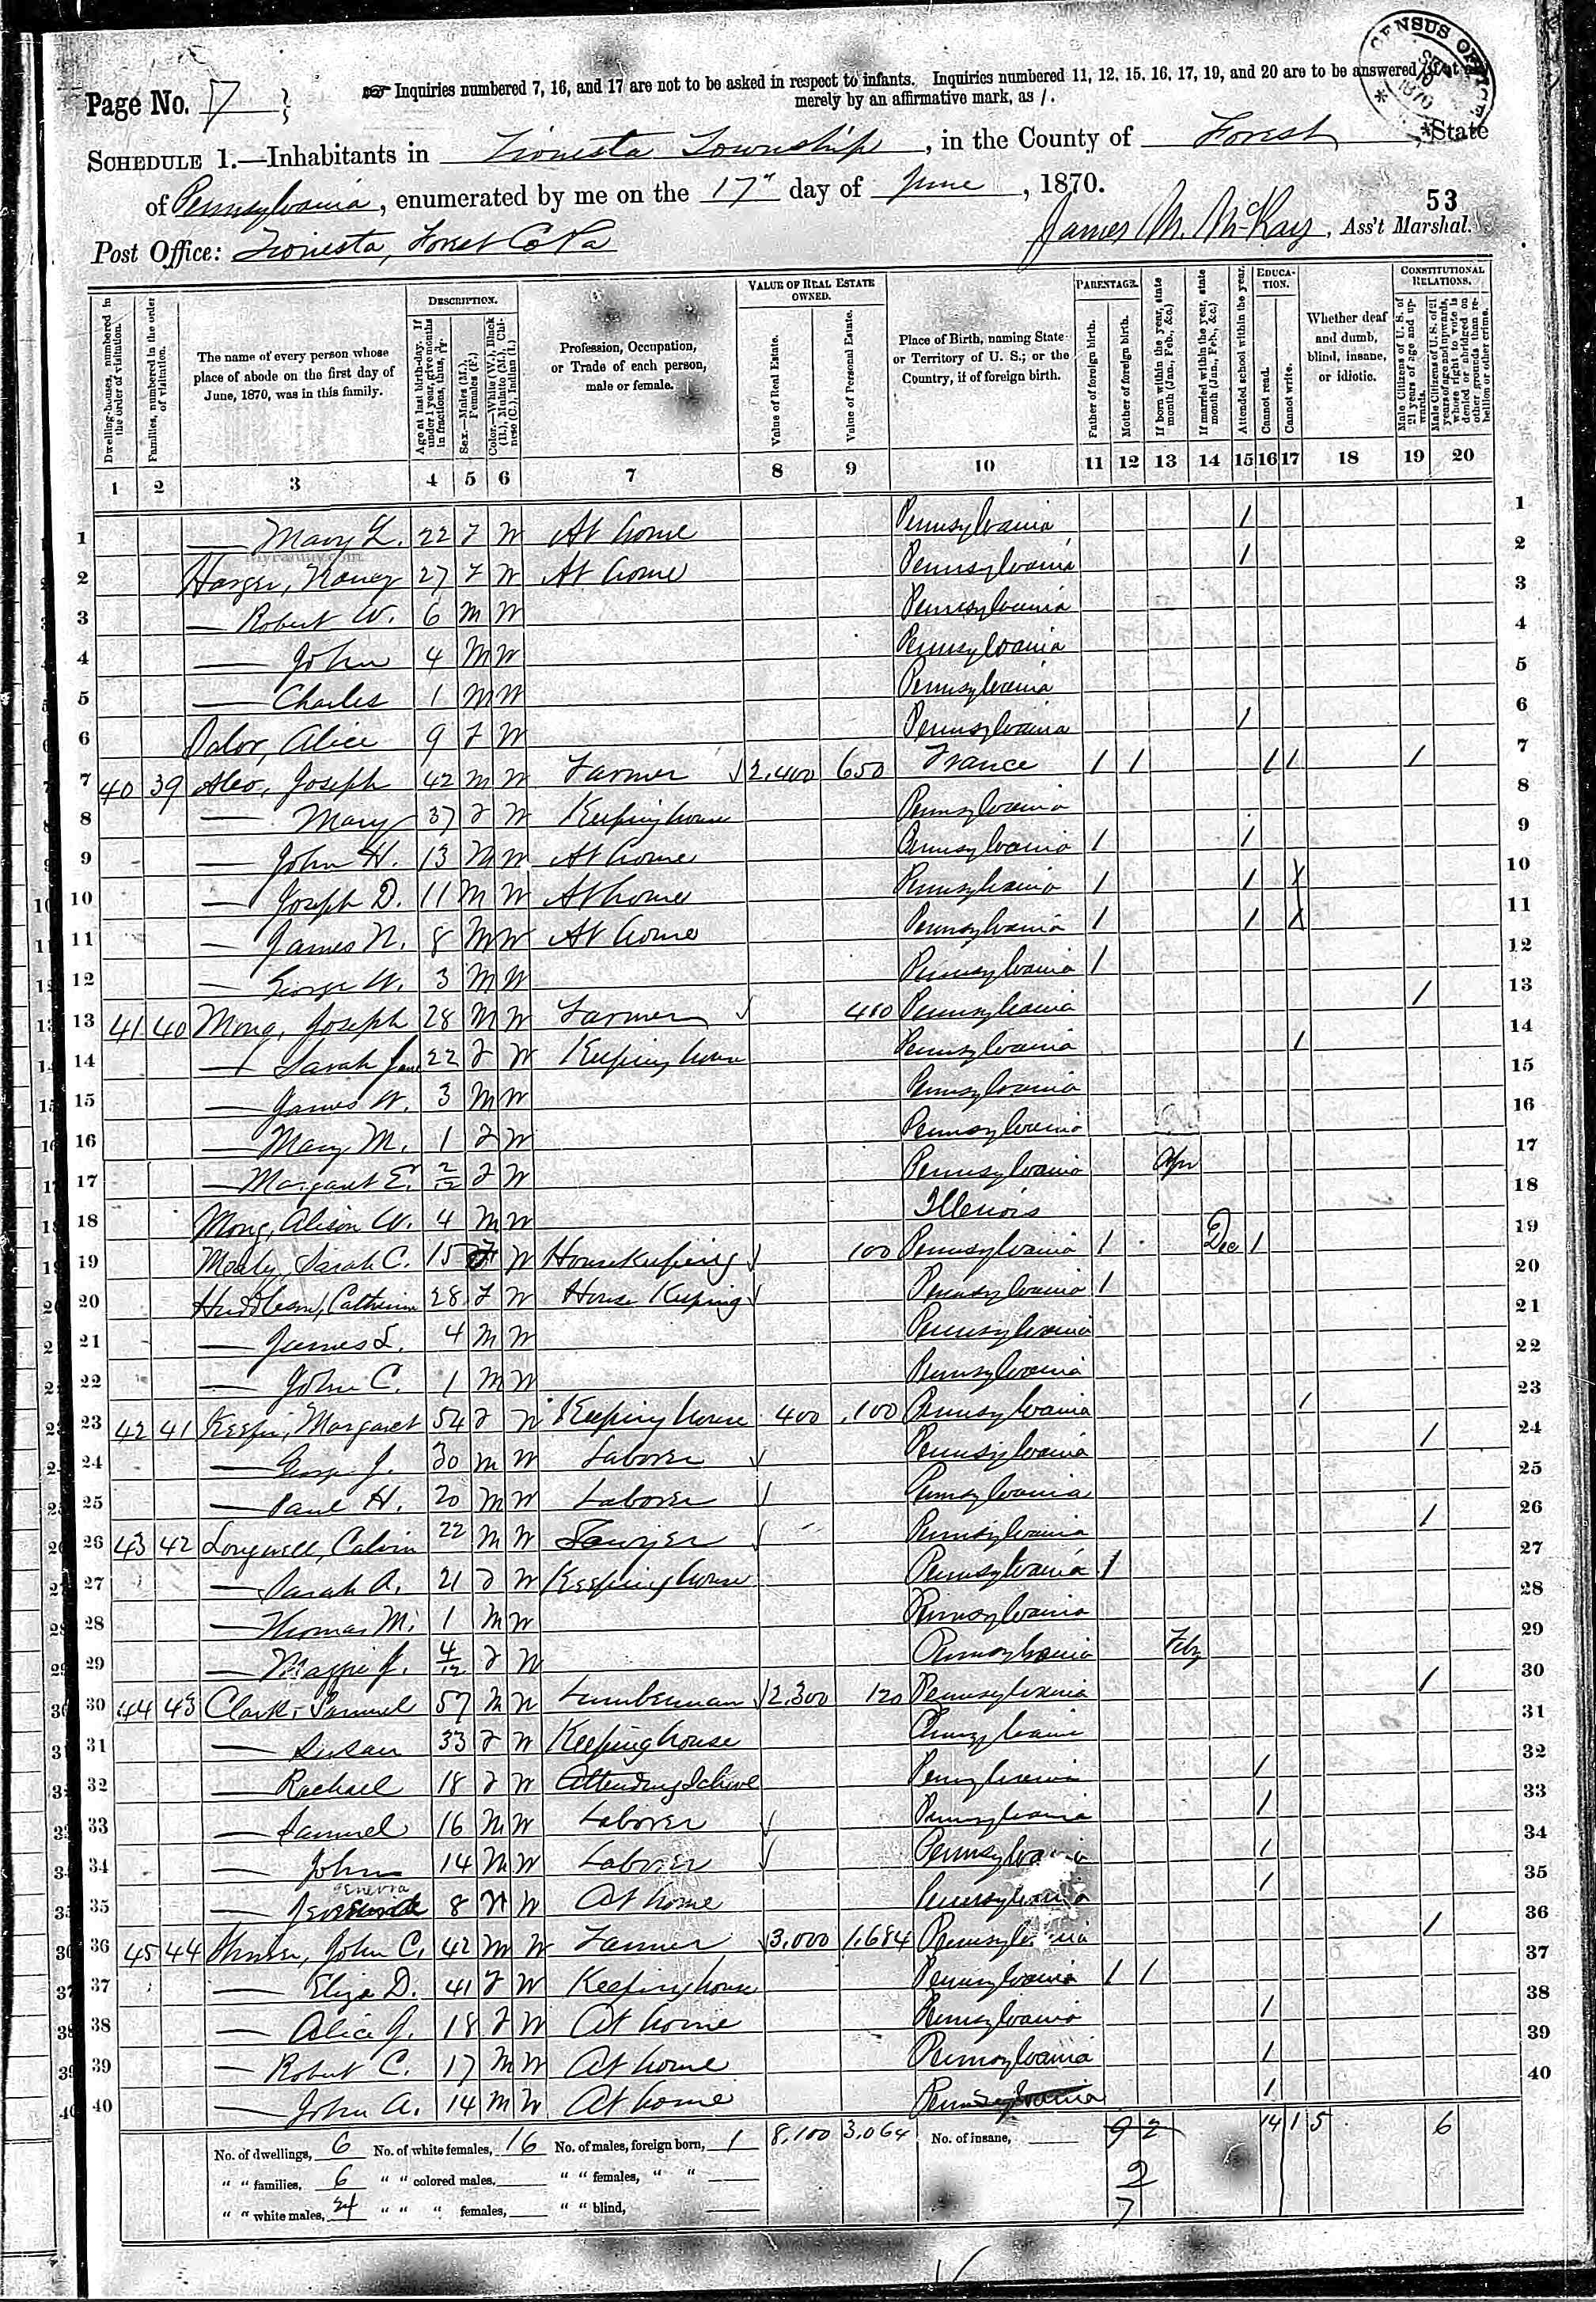 Page No. 7
☞ Inquiries numbered 7, 16, and 17 are not to be asked in respect to infants. Inquiries numbered 11, 12, 15, 16, 17, 19, and 20 are to be answered if at all
merely by an affirmative mark, as /.
CENSUS OFFICE 1870
SCHEDULE 1.—Inhabitants in Tionesta Township, in the County of Forest, State
of Pennsylvania, enumerated by me on the 17" day of June, 1870.
53
Post Office: Tionesta, Forest Co Pa
James M. McKay, Ass't Marshal.
Dwelling-houses, numbered in the order of visitation.
Families, numbered in the order of visitation.
The name of every person whose place of abode on the first day of June, 1870, was in this family.
DESCRIPTION.
Age at last birth-day. If under 1 year, give months in fractions, thus, 3/12.
Sex.—Males (M.), Females (F.)
Color.—White (W.), Black (B.), Mulatto (M.), Chinese (C.), Indian (I.)
Profession, Occupation, or Trade of each person, male or female.
VALUE OF REAL ESTATE OWNED.
Value of Real Estate.
Value of Personal Estate.
Place of Birth, naming State or Territory of U. S.; or the Country, if of foreign birth.
PARENTAGE.
Father of foreign birth.
Mother of foreign birth.
If born within the year, state month (Jan., Feb., &c.)
If married within the year, state month (Jan., Feb., &c.)
Attended school within the year.
EDUCATION.
Cannot read.
Cannot write.
Whether deaf and dumb, blind, insane, or idiotic.
CONSTITUTIONAL RELATIONS.
Male Citizens of U. S. of 21 years of age and upwards.
Male Citizens of U. S. of 21 years of age and upwards, whose right to vote is denied or abridged on other grounds than rebellion or other crime.
1 2 3 4 5 6 7 8 9 10 11 12 13 14 15 16 17 18 19 20
1 — Mary L. 22 F W At home Pennsylvania / 1
2 Harger, Nancy 27 F W At home Pennsylvania / 2
3 — Robert W. 6 M W Pennsylvania 3
4 — John 4 M W Pennsylvania 4
5 — Charles 1 M W Pennsylvania 5
6 Alice 9 F W Pennsylvania / 6
7 40 39 Joseph 42 M W Farmer ✓ 2,400 650 France / / / / / 7
8 — Mary 37 F W Keeping house Pennsylvania 8
9 — John H. 13 M W At home Pennsylvania / / 9
10 — Joseph D. 11 M W At home Pennsylvania / / X 10
11 — James N. 8 M W At home Pennsylvania / / X 11
12 — George W. 3 M W Pennsylvania / 12
13 41 40 Mong, Joseph 28 M W Farmer ✓ 410 Pennsylvania / 13
14 — Sarah Jane 22 F W Keeping house Pennsylvania / 14
15 — James W. 3 M W Pennsylvania 15
16 — Mary M. 1 F W Pennsylvania 16
17 — Margaret E. 2/12 F W Pennsylvania Apr 17
18 Mong, Alison W. 4 M W Illinois 18
19 Sarah C. 15 F W Housekeeping ✓ 100 Pennsylvania / Dec / 19
20 Catherine 28 F W House Keeping ✓ Pennsylvania / 20
21 — James L. 4 M W Pennsylvania 21
22 — John C. 1 M W Pennsylvania 22
23 42 41 Margaret 54 F W Keeping house 400 100 Pennsylvania / 23
24 — George J. 30 M W Laborer ✓ Pennsylvania / 24
25 — Paul H. 20 M W Laborer ✓ Pennsylvania 25
26 43 42 Longwell, Calvin 22 M W Sawyer ✓ Pennsylvania / 26
27 — Sarah A. 21 F W Keeping house Pennsylvania / 27
28 — Thomas M. 1 M W Pennsylvania 28
29 — Maggie J. 4/12 F W Pennsylvania Feby 29
30 44 43 Clark, Samuel 57 M W Lumberman ✓ 2,300 120 Pennsylvania / 30
31 — Susan 33 F W Keeping house Pennsylvania 31
32 — Rachael 18 F W Attending School Pennsylvania / 32
33 — Samuel 16 M W Laborer ✓ Pennsylvania / 33
34 — John 14 M W Laborer ✓ Pennsylvania / 34
35 — 8 W At home Pennsylvania / 35
36 45 44 John C. 42 M W Farmer ✓ 3,000 1,684 Pennsylvania / 36
37 — Eliza D. 41 F W Keeping house Pennsylvania / / 37
38 — Alice J. 18 F W At home Pennsylvania / 38
39 — Robert C. 17 M W At home Pennsylvania / 39
40 — John A. 14 M W At home Pennsylvania / 40
No. of dwellings, 6 No. of white females, 16 No. of males, foreign born, 1 8,100 3,064 No. of insane, 9 2 14 1 5 6
" " families, 6 " " colored males, " " females, " " 2
" " white males, 24 " " " females, " " blind, 7